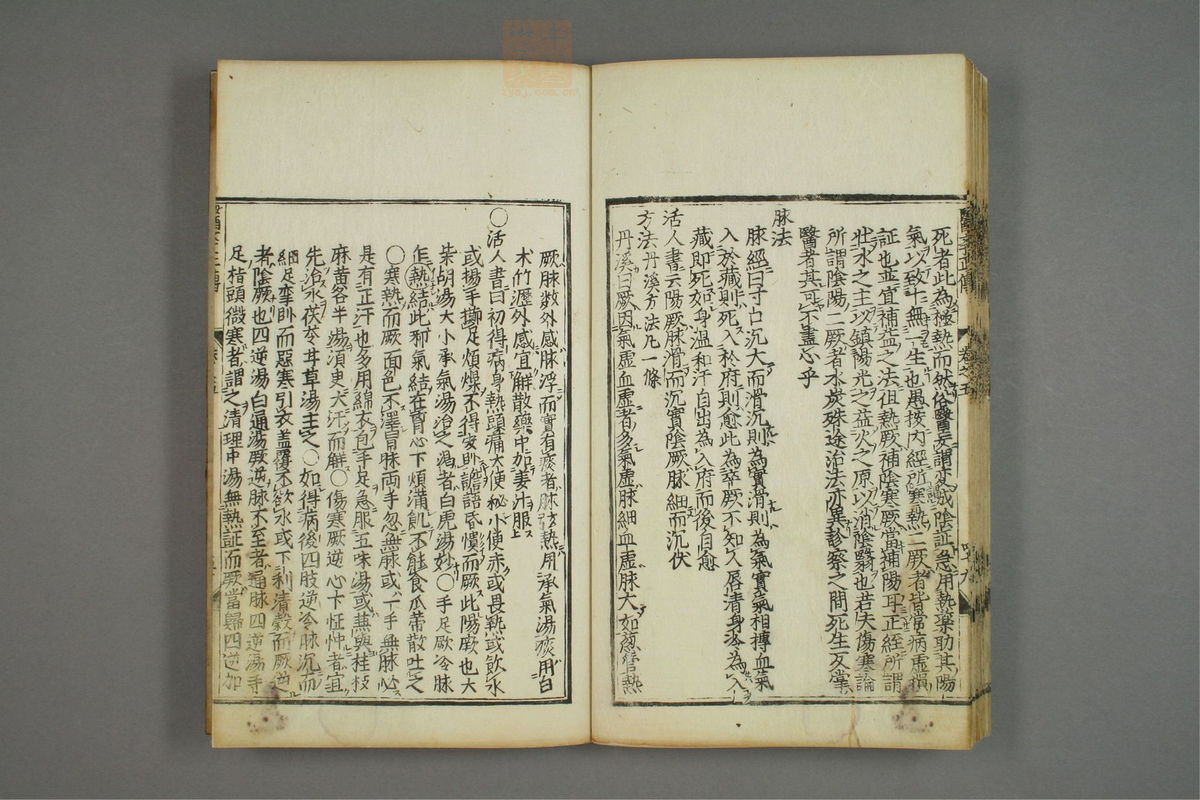 死者此為極熱而然俗醫云謂変成陰証急用熱藥助其陽
氣以致十無一生也愚按內經所謂寒熱二厥者皆常病虛損
証也並宜補益之法但熱厥補陰寒厥當補陽耳正經所謂
壯水之主以鎮陽光之益火之原以消陰翳也若夫傷寒論
所謂陰陽二厥者水炭殊途治法亦異診察之間死生反掌
醫者其可不盡心乎
脉法
脉經曰寸口沉大而滑沉則為實滑則為氣實氣相搏血氣
入於藏則死入於府則愈此為卒厥不知人唇清身冷為入
藏即死如身溫和汗自出為入府而後自愈
活人書云陽厥脉滑而沉實陰厥脉細而沉伏
方法丹溪方法凡一條
丹溪曰厥因氣虛血虛者多氣虛脉細血虛脉大如葱管熱
厥脉數外感脉浮而實有痰者脉弦熱用承氣湯痰用白
术竹瀝外感宜解散藥中加姜汁服上
○活人書曰初得病身熱頭痛大便秘小便赤或畏熱或飲水
或揚手擲足煩燥不得安臥譫語昏憒而厥此陽厥也大
柴胡湯大小承氣湯治之渴者白虎湯妙○手足厥冷脉
乍熱結此邪氣結在胷心下煩滿飢不能食瓜蒂散吐之
○寒熱而厥面色不澤冐昧兩手忽無脉或一手無脉必
是有正汗也多用綿衣包手足急服五味湯或兼與桂枝
麻黃各半湯須臾大汗而解○傷寒厥逆心下怔忡者宜
先治水茯苓甘草湯主之○如得病後四肢逆冷脉沉而
細足攣臥而惡寒引衣蓋覆不欲水或下利清穀而厥逆
者陰厥也四逆湯白通湯厥逆脉不至者通脉四逆湯手
足指頭微寒者謂之清理中湯無熱証而厥當歸四逆加
zyoj.com.cn